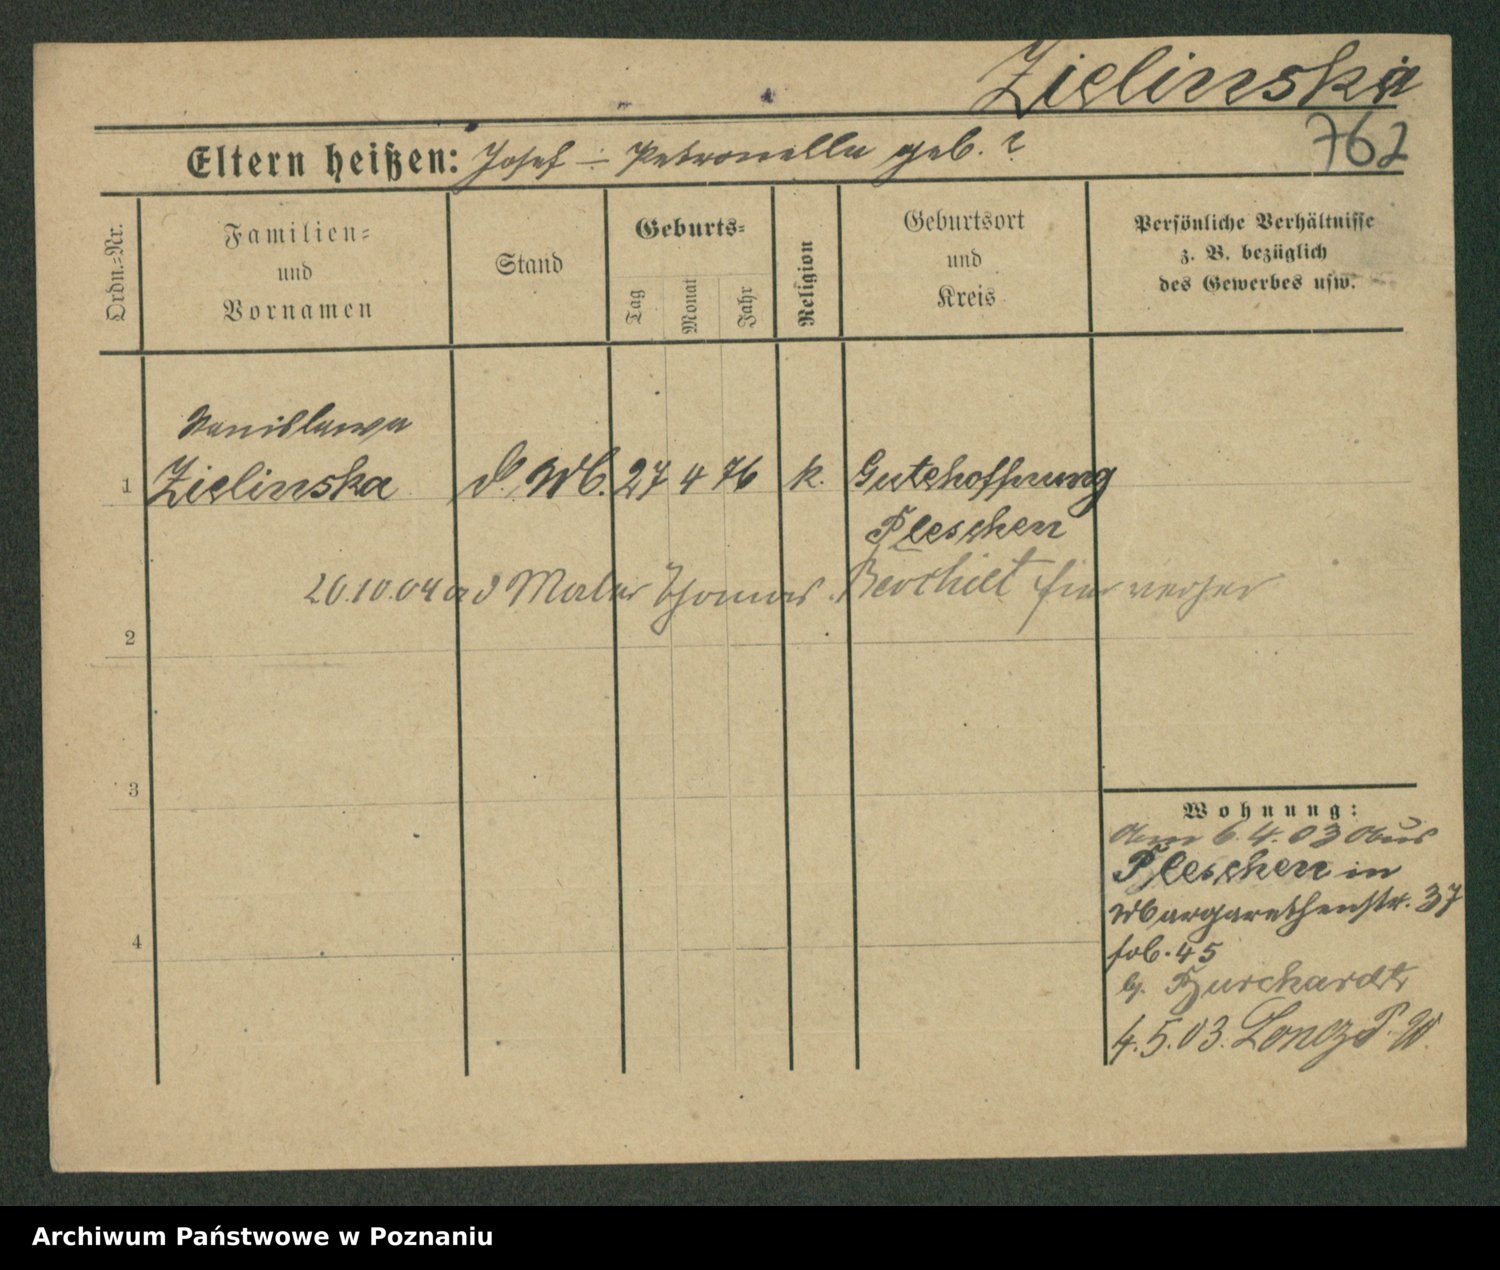 Zielinska
762
Eltern heißen: Josef – Petronella geb. ?
Ordn.-Nr.
Familien-
und
Vornamen
Stand
Geburts-
Tag
Monat
Jahr
Religion
Geburtsort
und
Kreis
Persönliche Verhältnisse
z. B. bezüglich
des Gewerbes usw.
Stanislawa
1 Zielinska 27 4 76 k. Gutehoffnung
Pleschen
20.10.04 Maler Thomas
2
3
4
Wohnung:
am 6.4.03 aus
Pleschen in
Margarethenstr. 37
b. Burchardt
4.5.03.
Archiwum Państwowe w Poznaniu